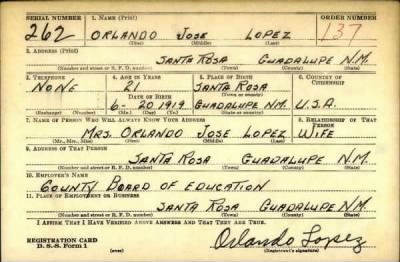 SERIAL NUMBER 1. NAME (Print) ORDER NUMBER
262 ORLANDO JOSE LOPEZ 137
(First) (Middle) (Last)
2. ADDRESS (Print)
SANTA ROSA GUADALUPE N.M.
(Number and street or R. F. D. number) (Town) (County) (State)
3. TELEPHONE 4. AGE IN YEARS 5. PLACE OF BIRTH 6. COUNTRY OF CITIZENSHIP
NONE 21 SANTA ROSA
DATE OF BIRTH (Town or county)
6- 20 1919 GUADALUPE N.M. U.S.A.
(Exchange) (Number) (Mo.) (Day) (Yr.) (State or country)
7. NAME OF PERSON WHO WILL ALWAYS KNOW YOUR ADDRESS 8. RELATIONSHIP OF THAT PERSON
MRS. ORLANDO JOSE LOPEZ WIFE
(Mr., Mrs., Miss) (First) (Middle) (Last)
9. ADDRESS OF THAT PERSON
SANTA ROSA GUADALUPE N.M.
(Number and street or R. F. D. number) (Town) (County) (State)
10. EMPLOYER'S NAME
COUNTY BOARD OF EDUCATION
11. PLACE OF EMPLOYMENT OR BUSINESS
SANTA ROSA GUADALUPE N.M.
(Number and street or R. F. D. number) (Town) (County) (State)
I AFFIRM THAT I HAVE VERIFIED ABOVE ANSWERS AND THAT THEY ARE TRUE.
REGISTRATION CARD
D. S. S. Form 1 (over) Orlando Lopez
(Registrant's signature)